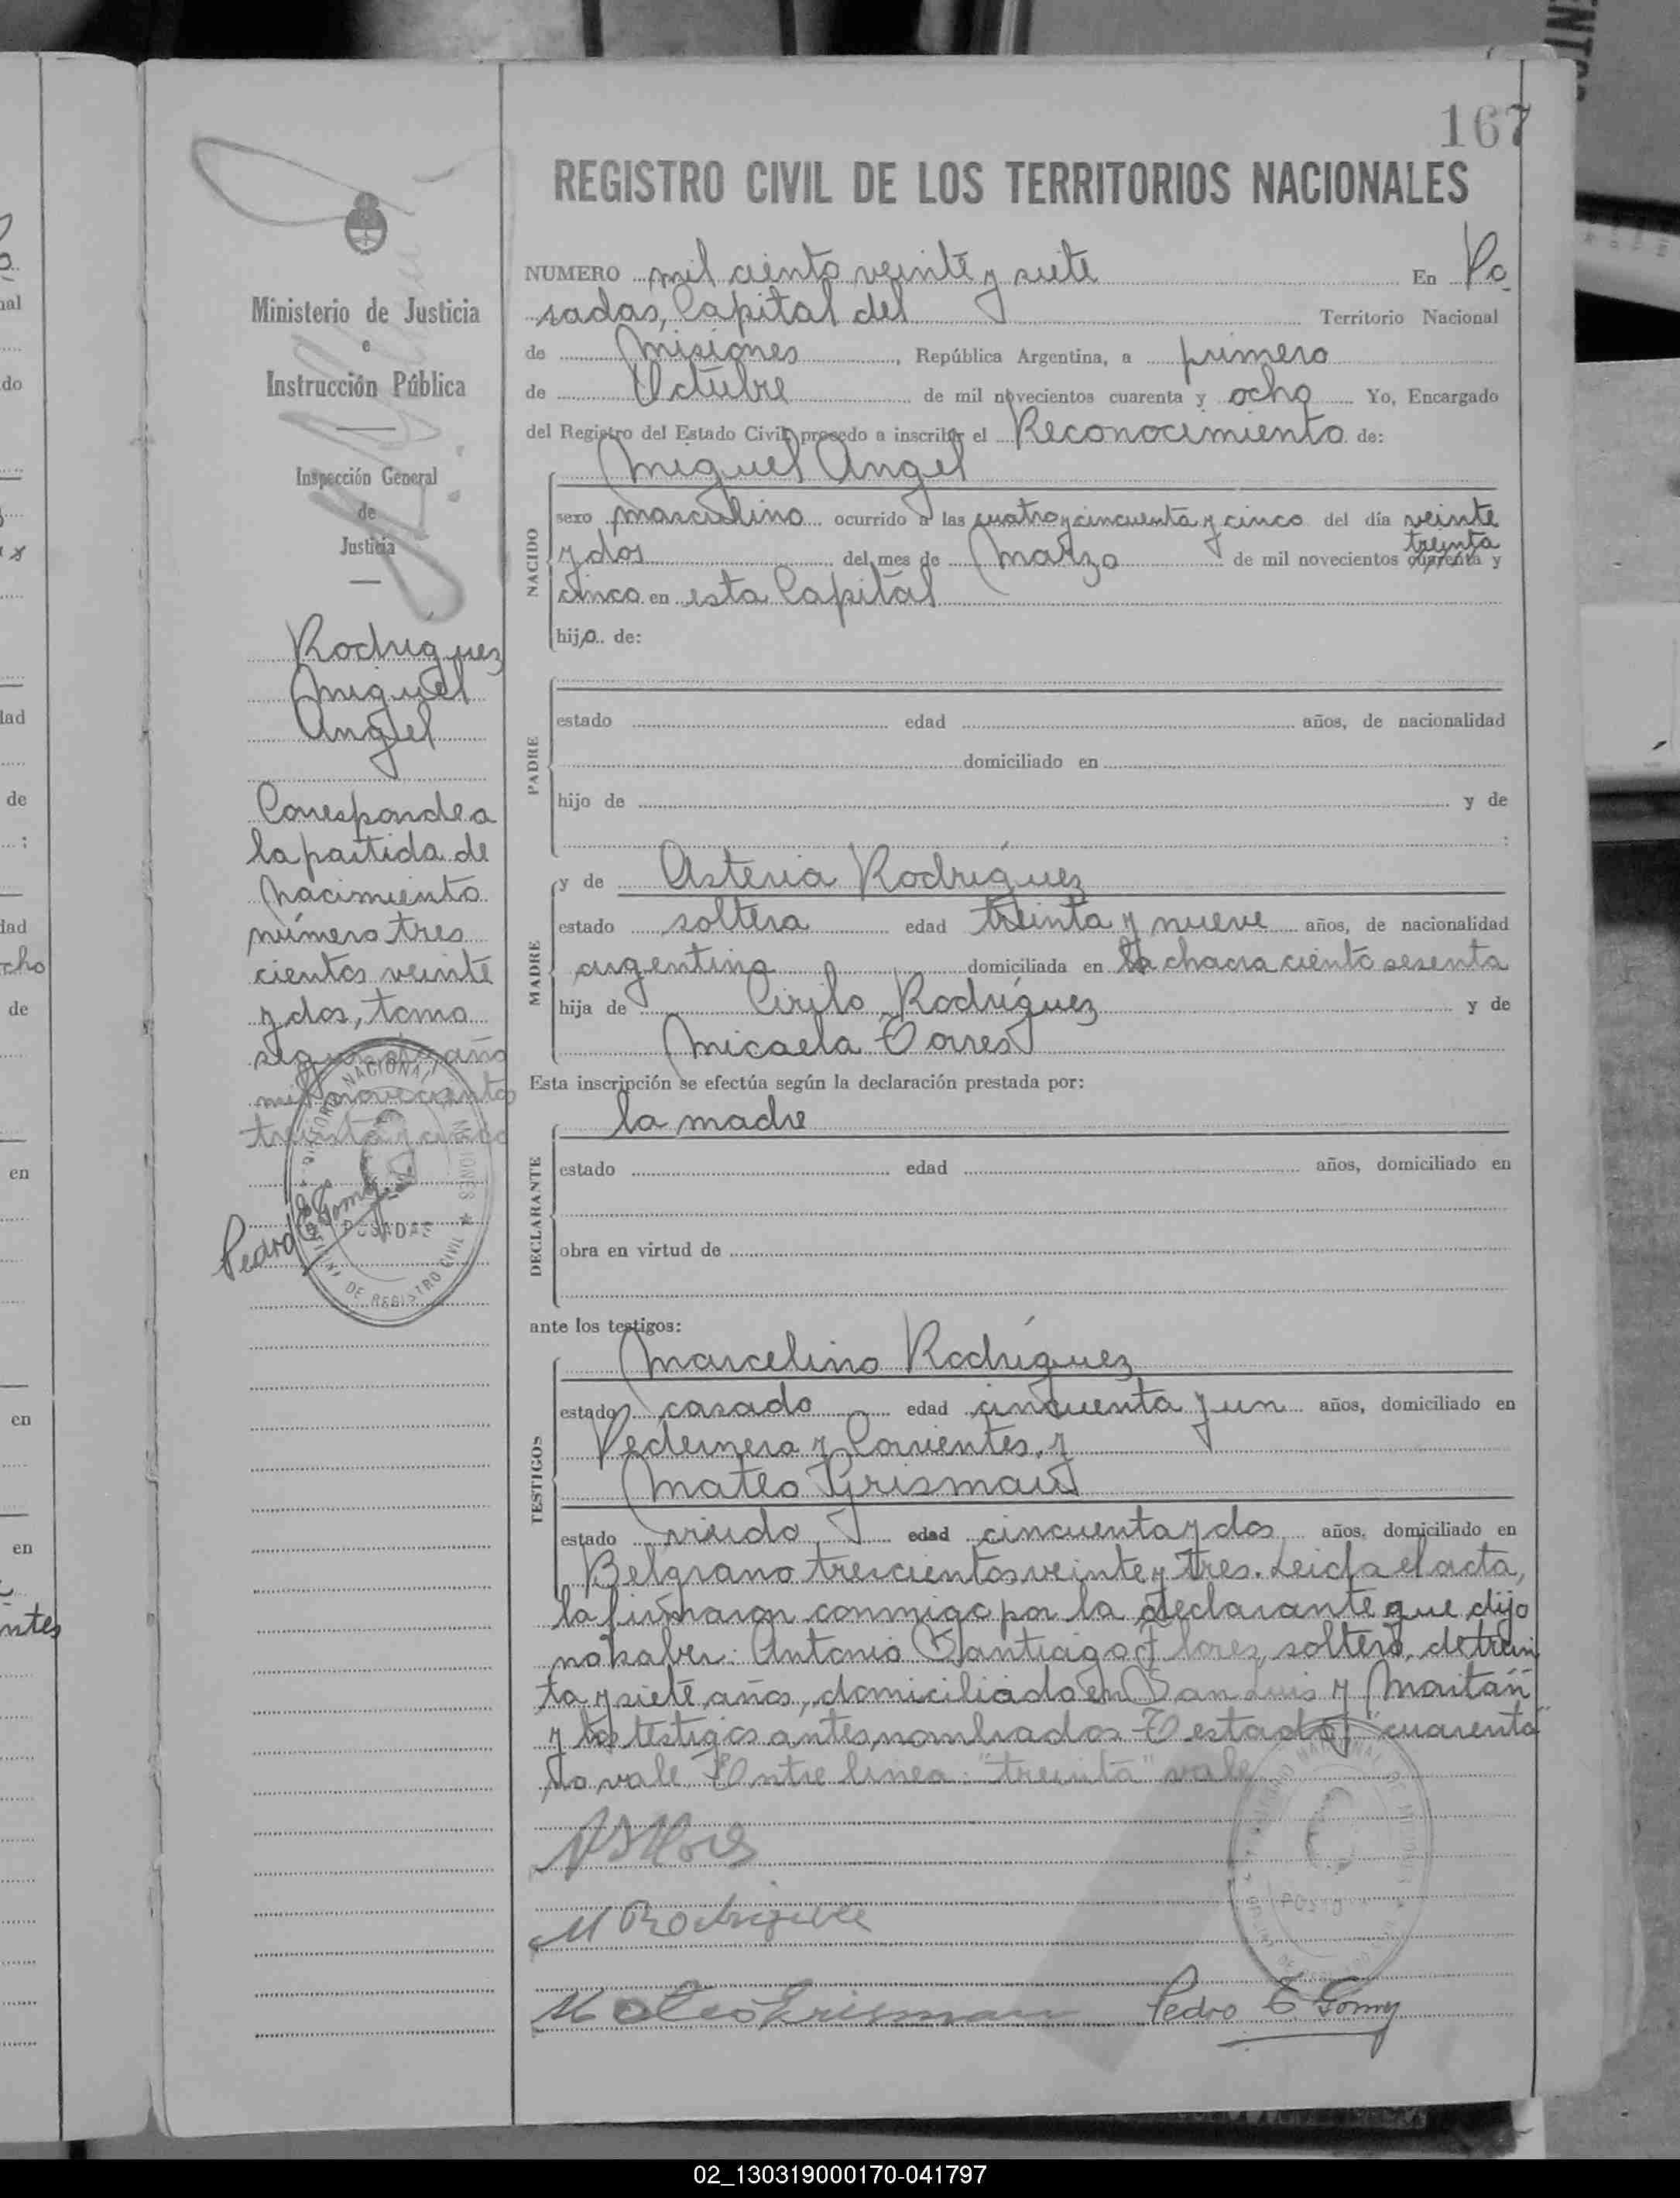 167
REGISTRO CIVIL DE LOS TERRITORIOS NACIONALES
Ministerio de Justicia
e
Instrucción Pública
Inspección General
de
Justicia
Rodríguez
Miguel
Angel
Corresponde a
la partida de
nacimiento
número tres
cientos veinte
y dos, tomo
segundo año
mil novecientos
treinta y cinco
Pedro E Gomez
NUMERO mil ciento veinte y siete En Po
sadas, Capital del Territorio Nacional
de Misiones, República Argentina, a primero
de Octubre de mil novecientos cuarenta y ocho Yo, Encargado
del Registro del Estado Civil, procedo a inscribir el Reconocimiento de:
Miguel Angel
NACIDO
sexo masculino ocurrido a las cuatro y cincuenta y cinco del día veinte
treinta
y dos del mes de Marzo de mil novecientos cuarenta y
cinco en esta Capital
hijo de:
PADRE
estado edad años, de nacionalidad
domiciliado en
hijo de y de
:
MADRE
y de Asteria Rodríguez
estado soltera edad treinta y nueve años, de nacionalidad
argentina domiciliada en la chacra ciento sesenta
hija de Cirilo Rodríguez y de
Micaela Torres
Esta inscripción se efectúa según la declaración prestada por:
DECLARANTE
la madre
estado edad años, domiciliado en
obra en virtud de
ante los testigos:
TESTIGOS
Marcelino Rodríguez
estado casado edad cincuenta y un años, domiciliado en
Pedernera y Corrientes, y
Mateo Grismau
estado viudo edad cincuenta y dos años, domiciliado en
Belgrano trescientos veinte y tres. Leida el acta,
la firmaron conmigo por la declarante que dijo
no saber: Antonio Santiago Flores, soltero, de trein
ta y siete años, domiciliado en San Luis y Maitán
y los testigos antes nombrados Testado: "cuarenta"
no vale Entre linea: "treinta" vale
A S Flores
M Rodriguez
Mateo Grismau
Pedro E Gomez
TERRITORIO NACIONAL DE MISIONES
POSADAS
OFICINA DE REGISTRO CIVIL
02_130319000170-041797